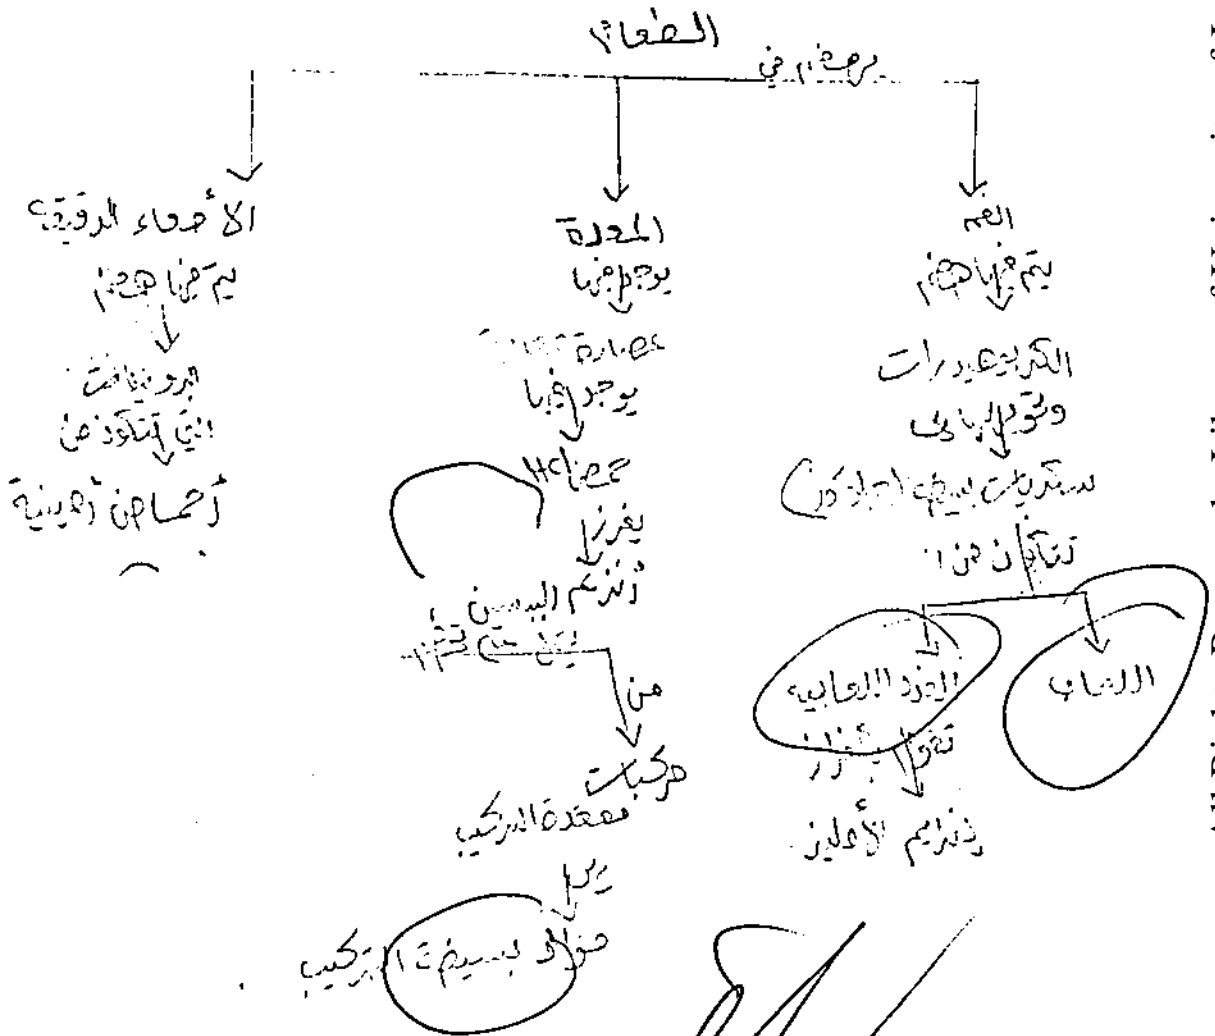 الطعام
يهضم في
الفم
يتم فيها هضم
الكربوهيدرات
وتحويلها إلى
سكريات بسيطة (جلوكوز)
تتكون من
اللعاب
الغدد اللعابية
تقوم بإفراز
إنزيم الأميليز
المعدة
يوجد فيها
عصارة
يوجد فيها
حمض HCl
يفرز
أنزيم الببسين
من
مركبات
معقدة التركيب
إلى
مواد بسيطة التركيب
الأمعاء الدقيقة
يتم فيها هضم
البروتينات
التي تتكون من
أحماض أمينية